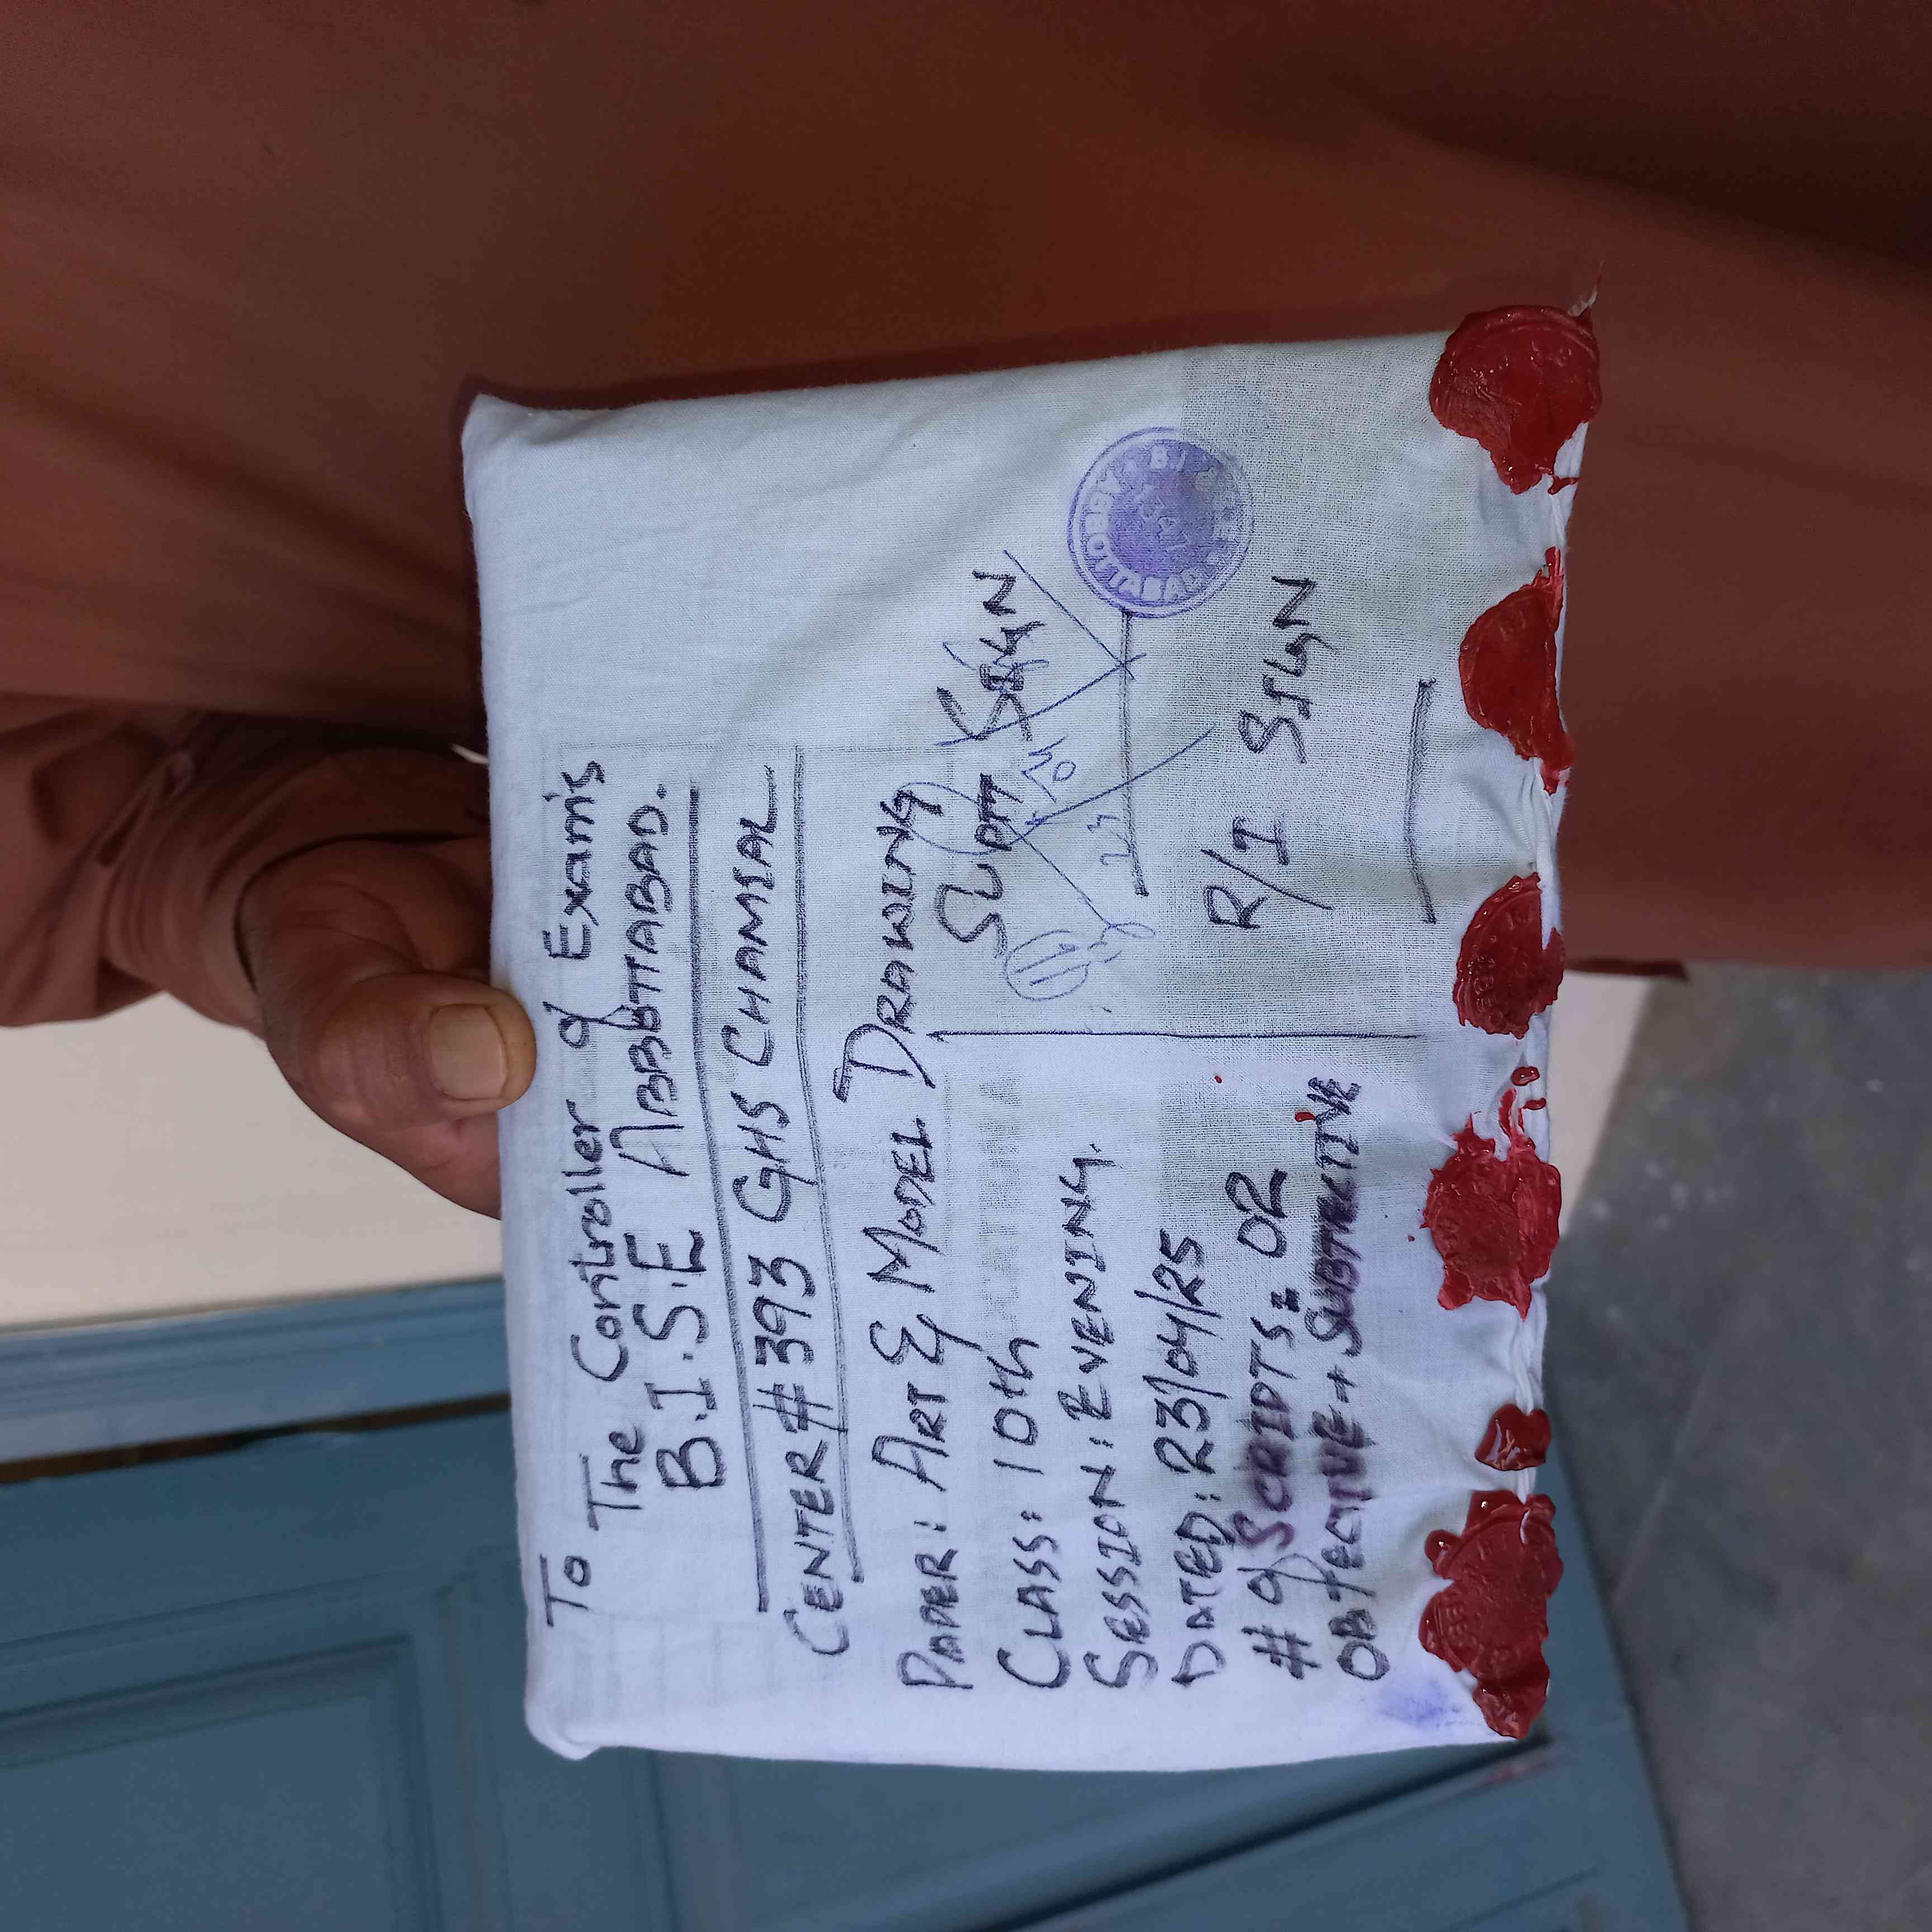 To
The Controller of Exam's
B.I.S.E ABBBTTABAD.
CENTER # 393 GHS CHAMIAL
PAPER: ART & MODEL DRAWING
CLASS: 10th
SESSION: EVENING.
DATED: 23/04/25
# of SCRIPTS: 02
OBJECTIVE + SUBJECTIVE
SUPTT SIGN
R/I SIGN